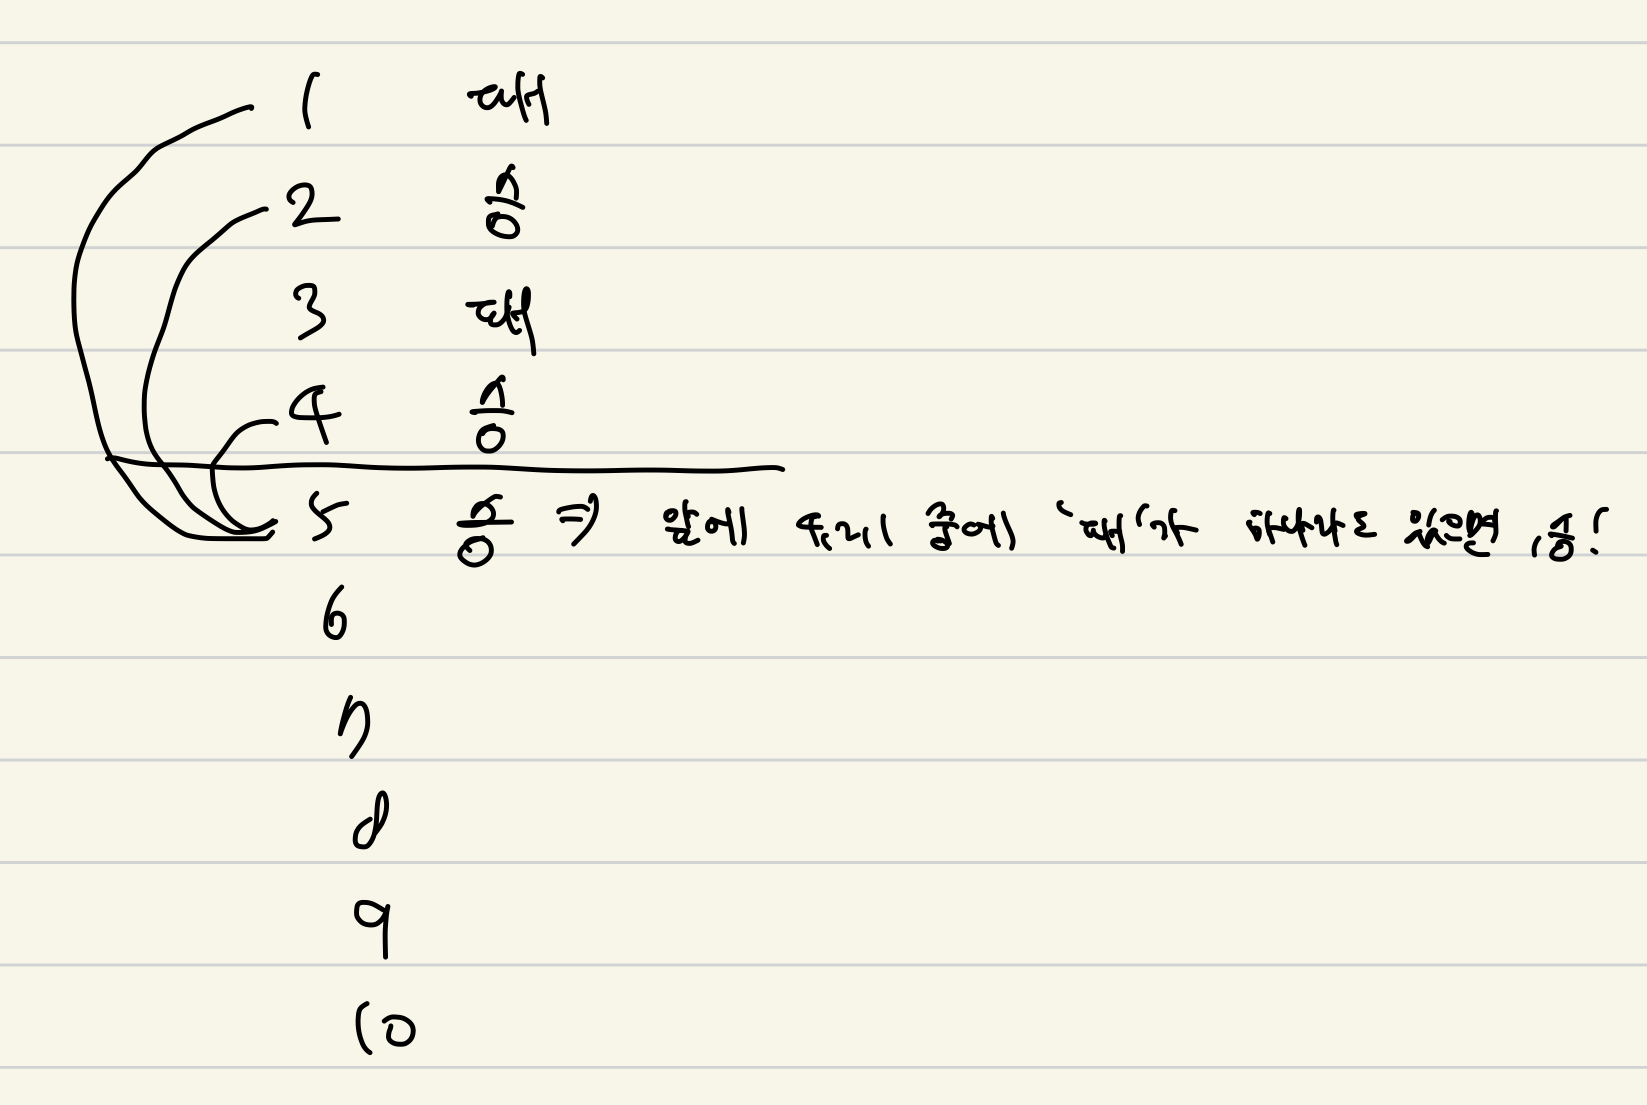 1 패
2 승
3 패
4 승
5 승 => 앞에 수 중에 '패'가 하나라도 있으면, '승'
6
7
8
9
10